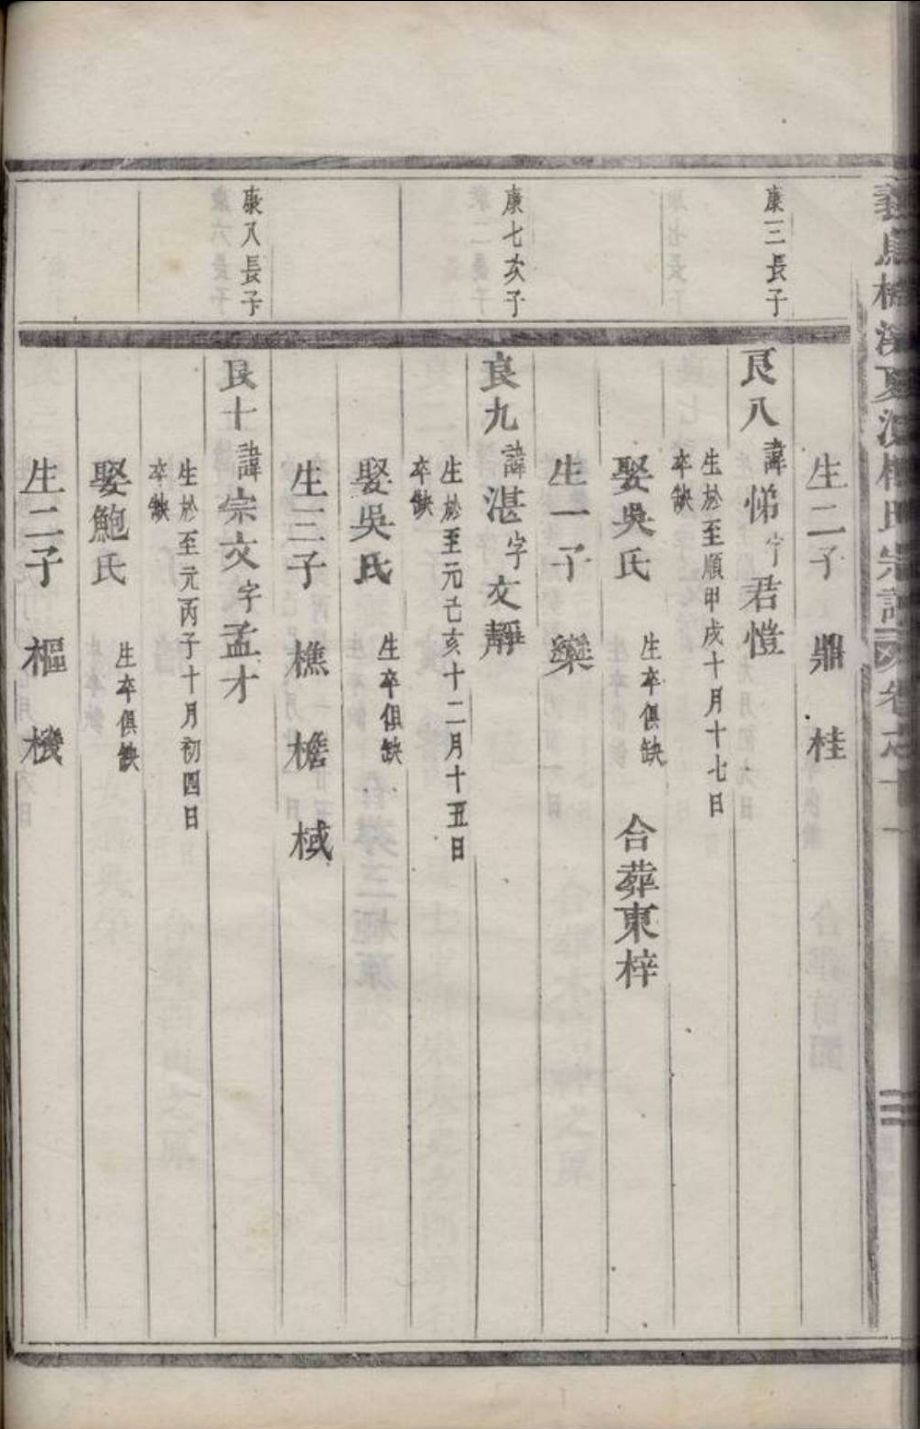 宗譜
卷之十一
三
生二子 鼎 桂
康三長子
良八 諱悌字君愷
生於至順甲戌十月十七日
卒缺
娶吳氏 生卒俱缺 合葬東梓
生一子 欒
康七次子
良九 諱湛字文靜
生於至元己亥十二月十五日
卒缺
娶吳氏 生卒俱缺
生三子 樵 檐 棫
康八長子
良十 諱宗文字孟才
生於至元丙子十月初四日
卒缺
娶鮑氏 生卒俱缺
生二子 樞 機